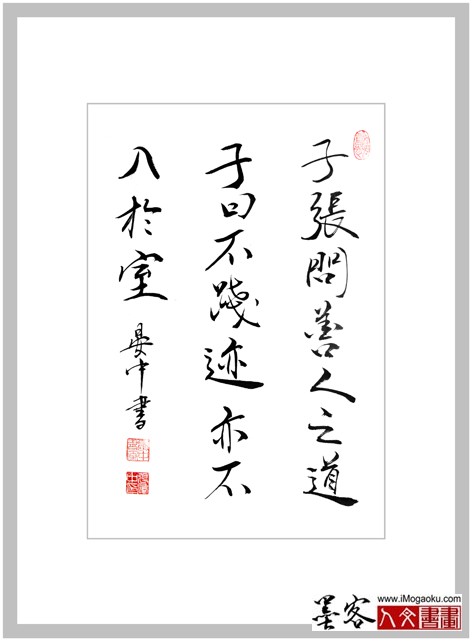 子張問善人之道
子曰不踐迹亦不
入於室
晏中書
www.iMogaoku.com
墨客
人文書畫